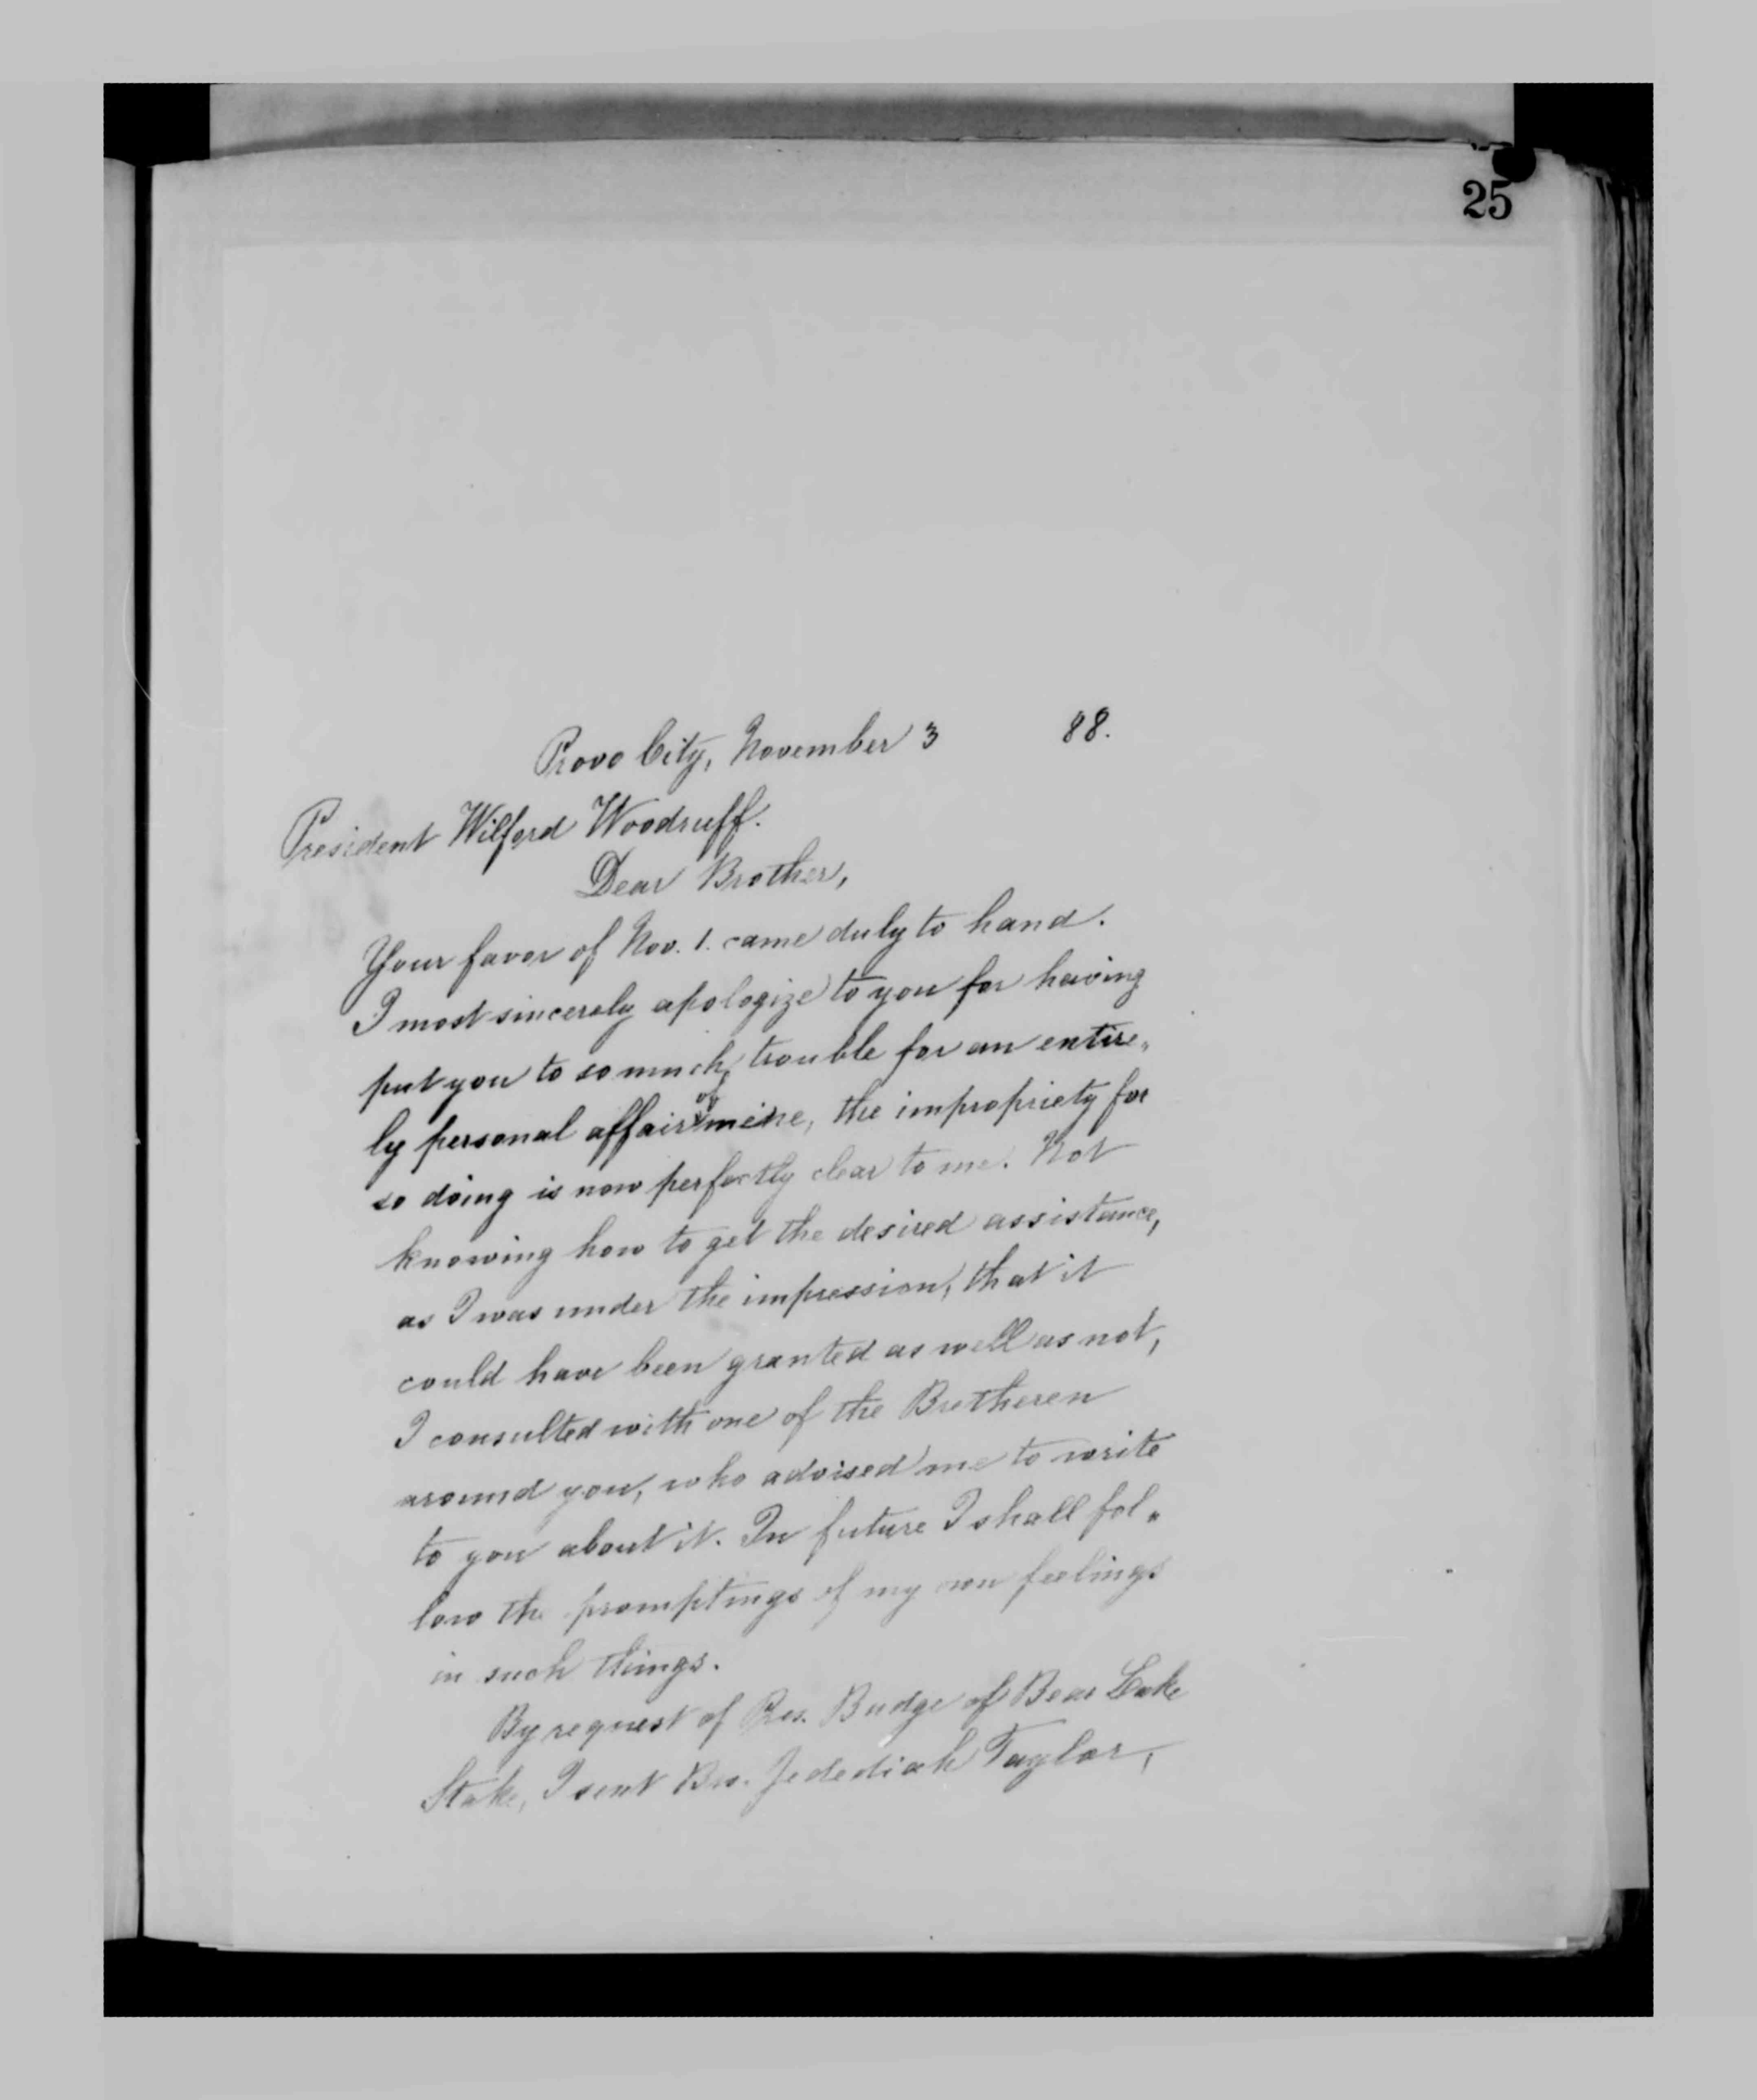 25
Provo City, November 3 88.
President Wilford Woodruff.
Dear Brother,
Your favor of Nov. 1. came duly to hand.
I most sincerely apologize to you for having
put you to so much trouble for an entire„
ly personal affair of mine, the impropriety for
so doing is now perfectly clear to me. Not
knowing how to get the desired assistance,
as I was under the impression, that it
could have been granted as well as not,
I consulted with one of the Bretheren
around you, who advised me to write
to you about it. In future I shall fol„
low the promptings of my own feelings
in such things.
By request of Pres. Budge of Bear Lake
Stake, I sent Bro. Jedediah Taylor,